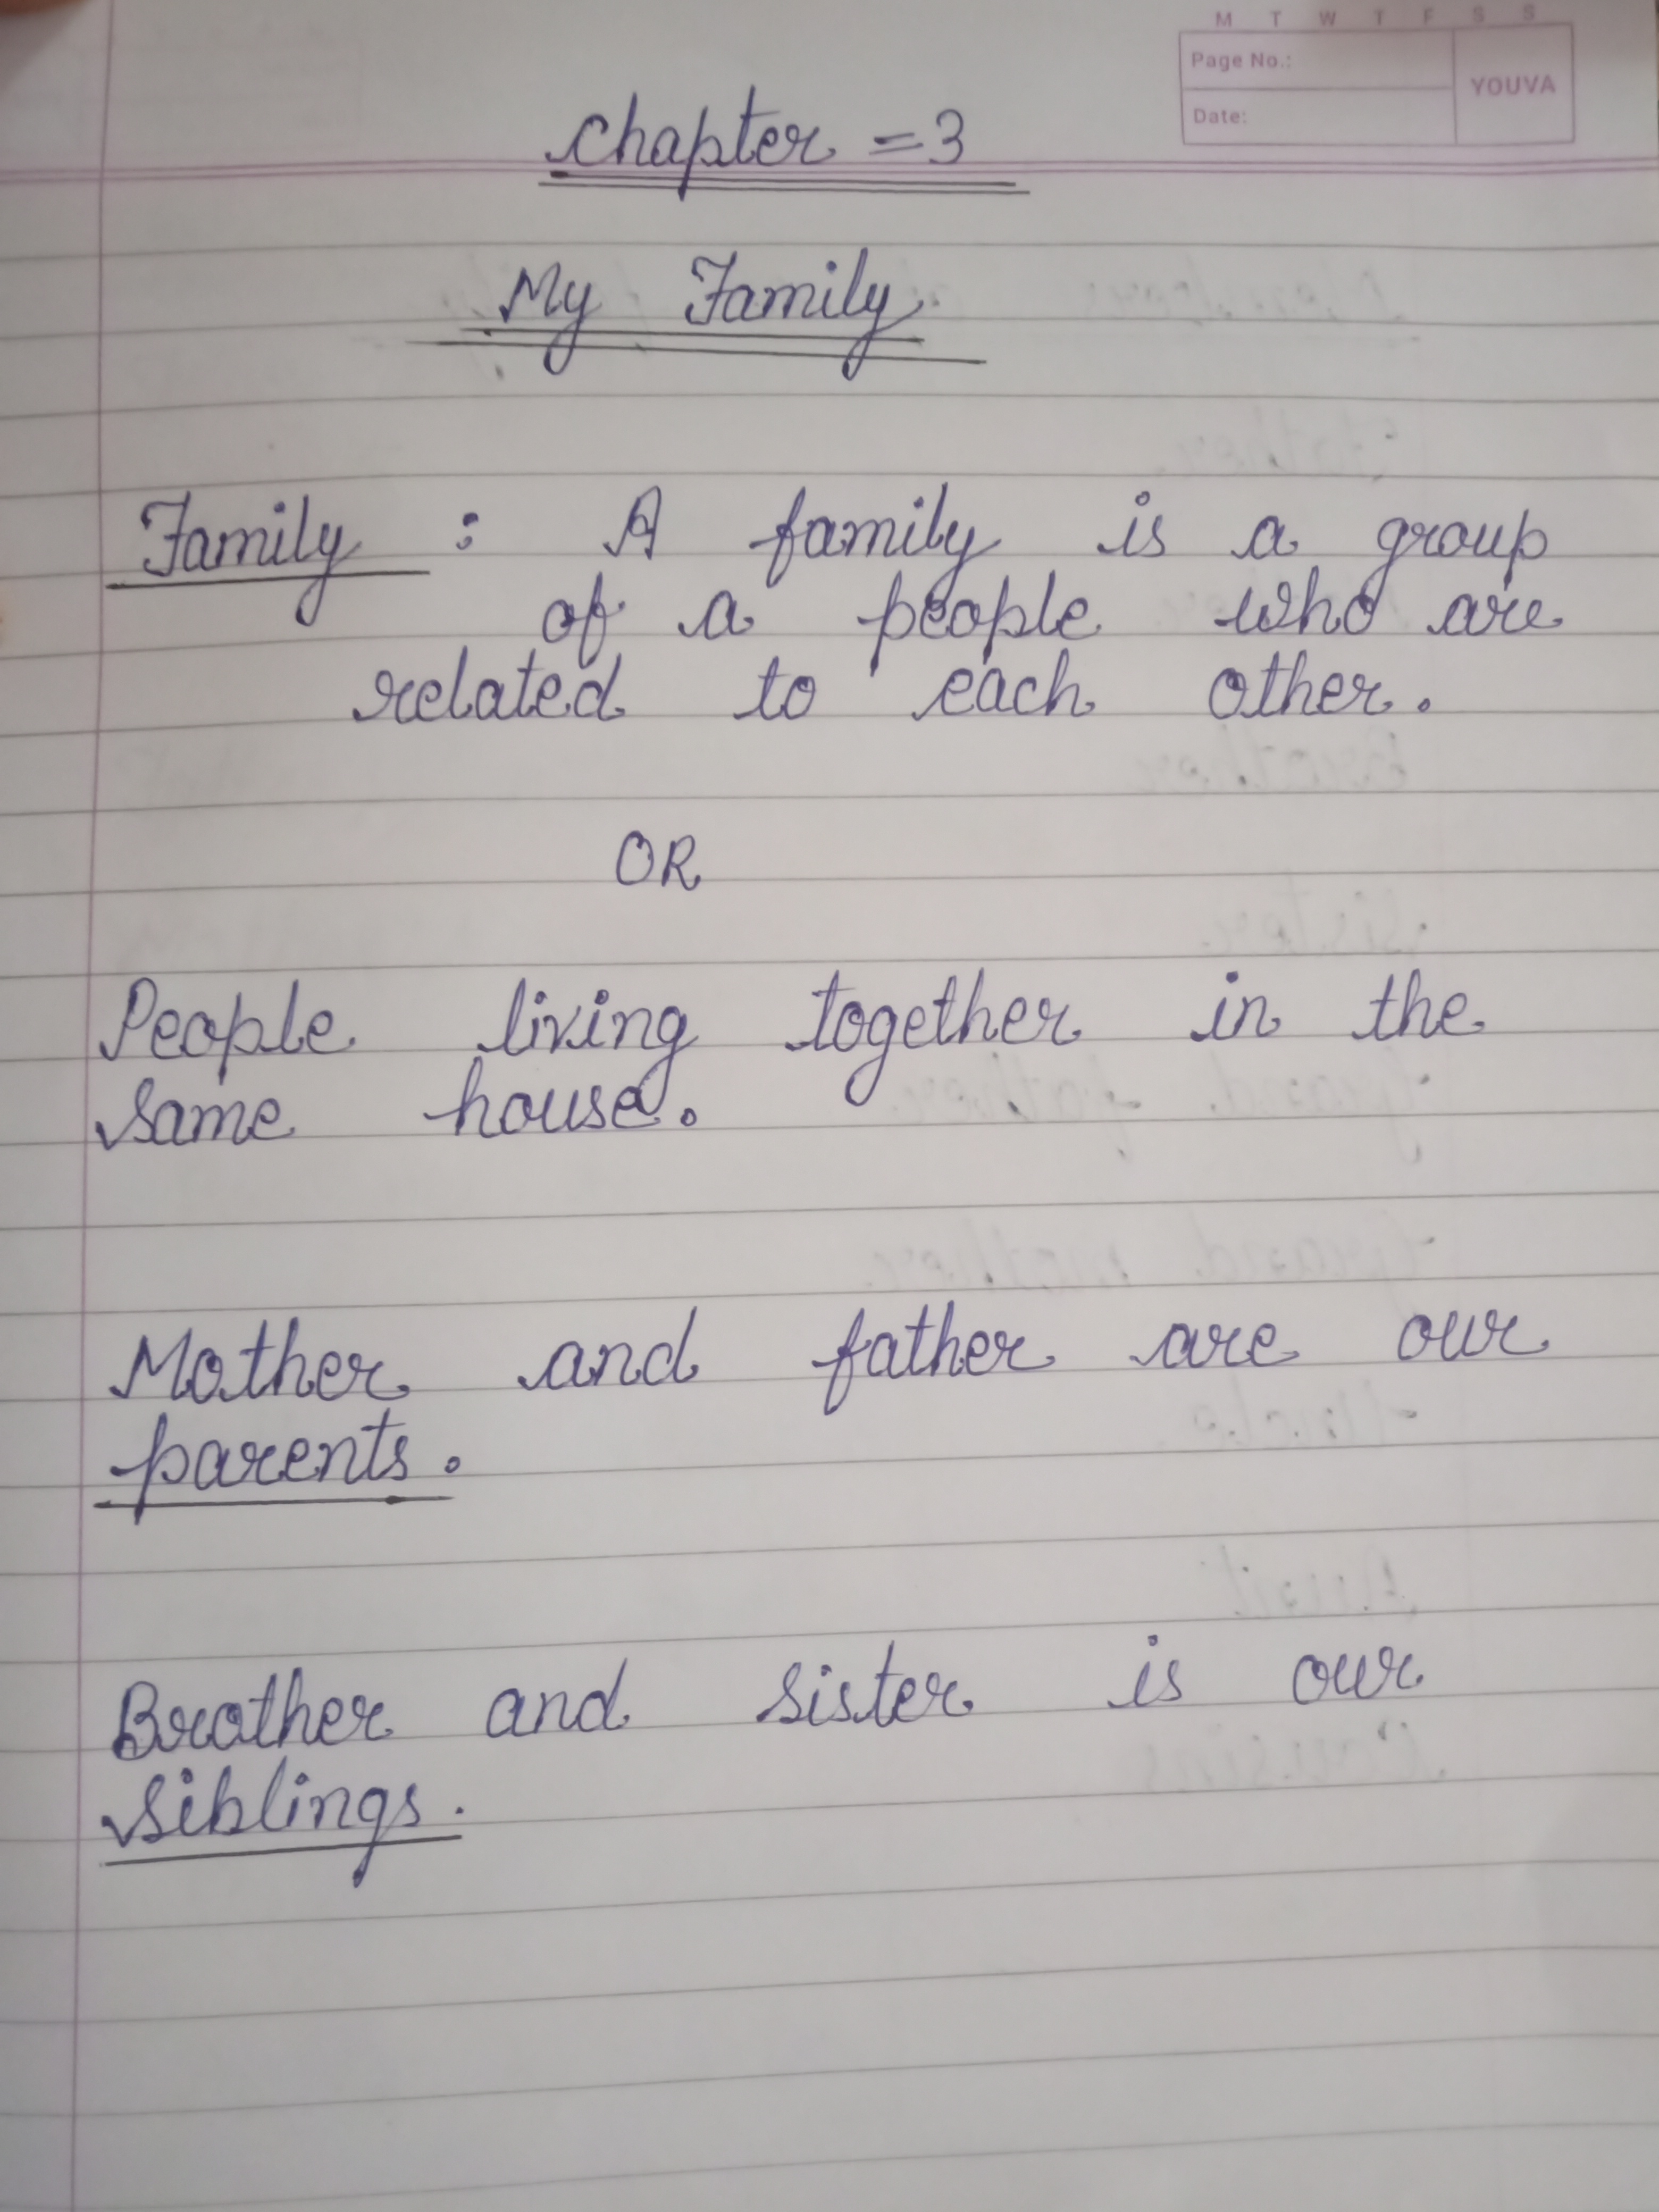 M T W T F S S
Page No.:
YOUVA
Date:
chapter = 3
My Family
Family : A family is a group
of a people who are
related to each other.
OR
People living together in the
same house.
Mother and father are our
parents.
Brother and sister is our
siblings.